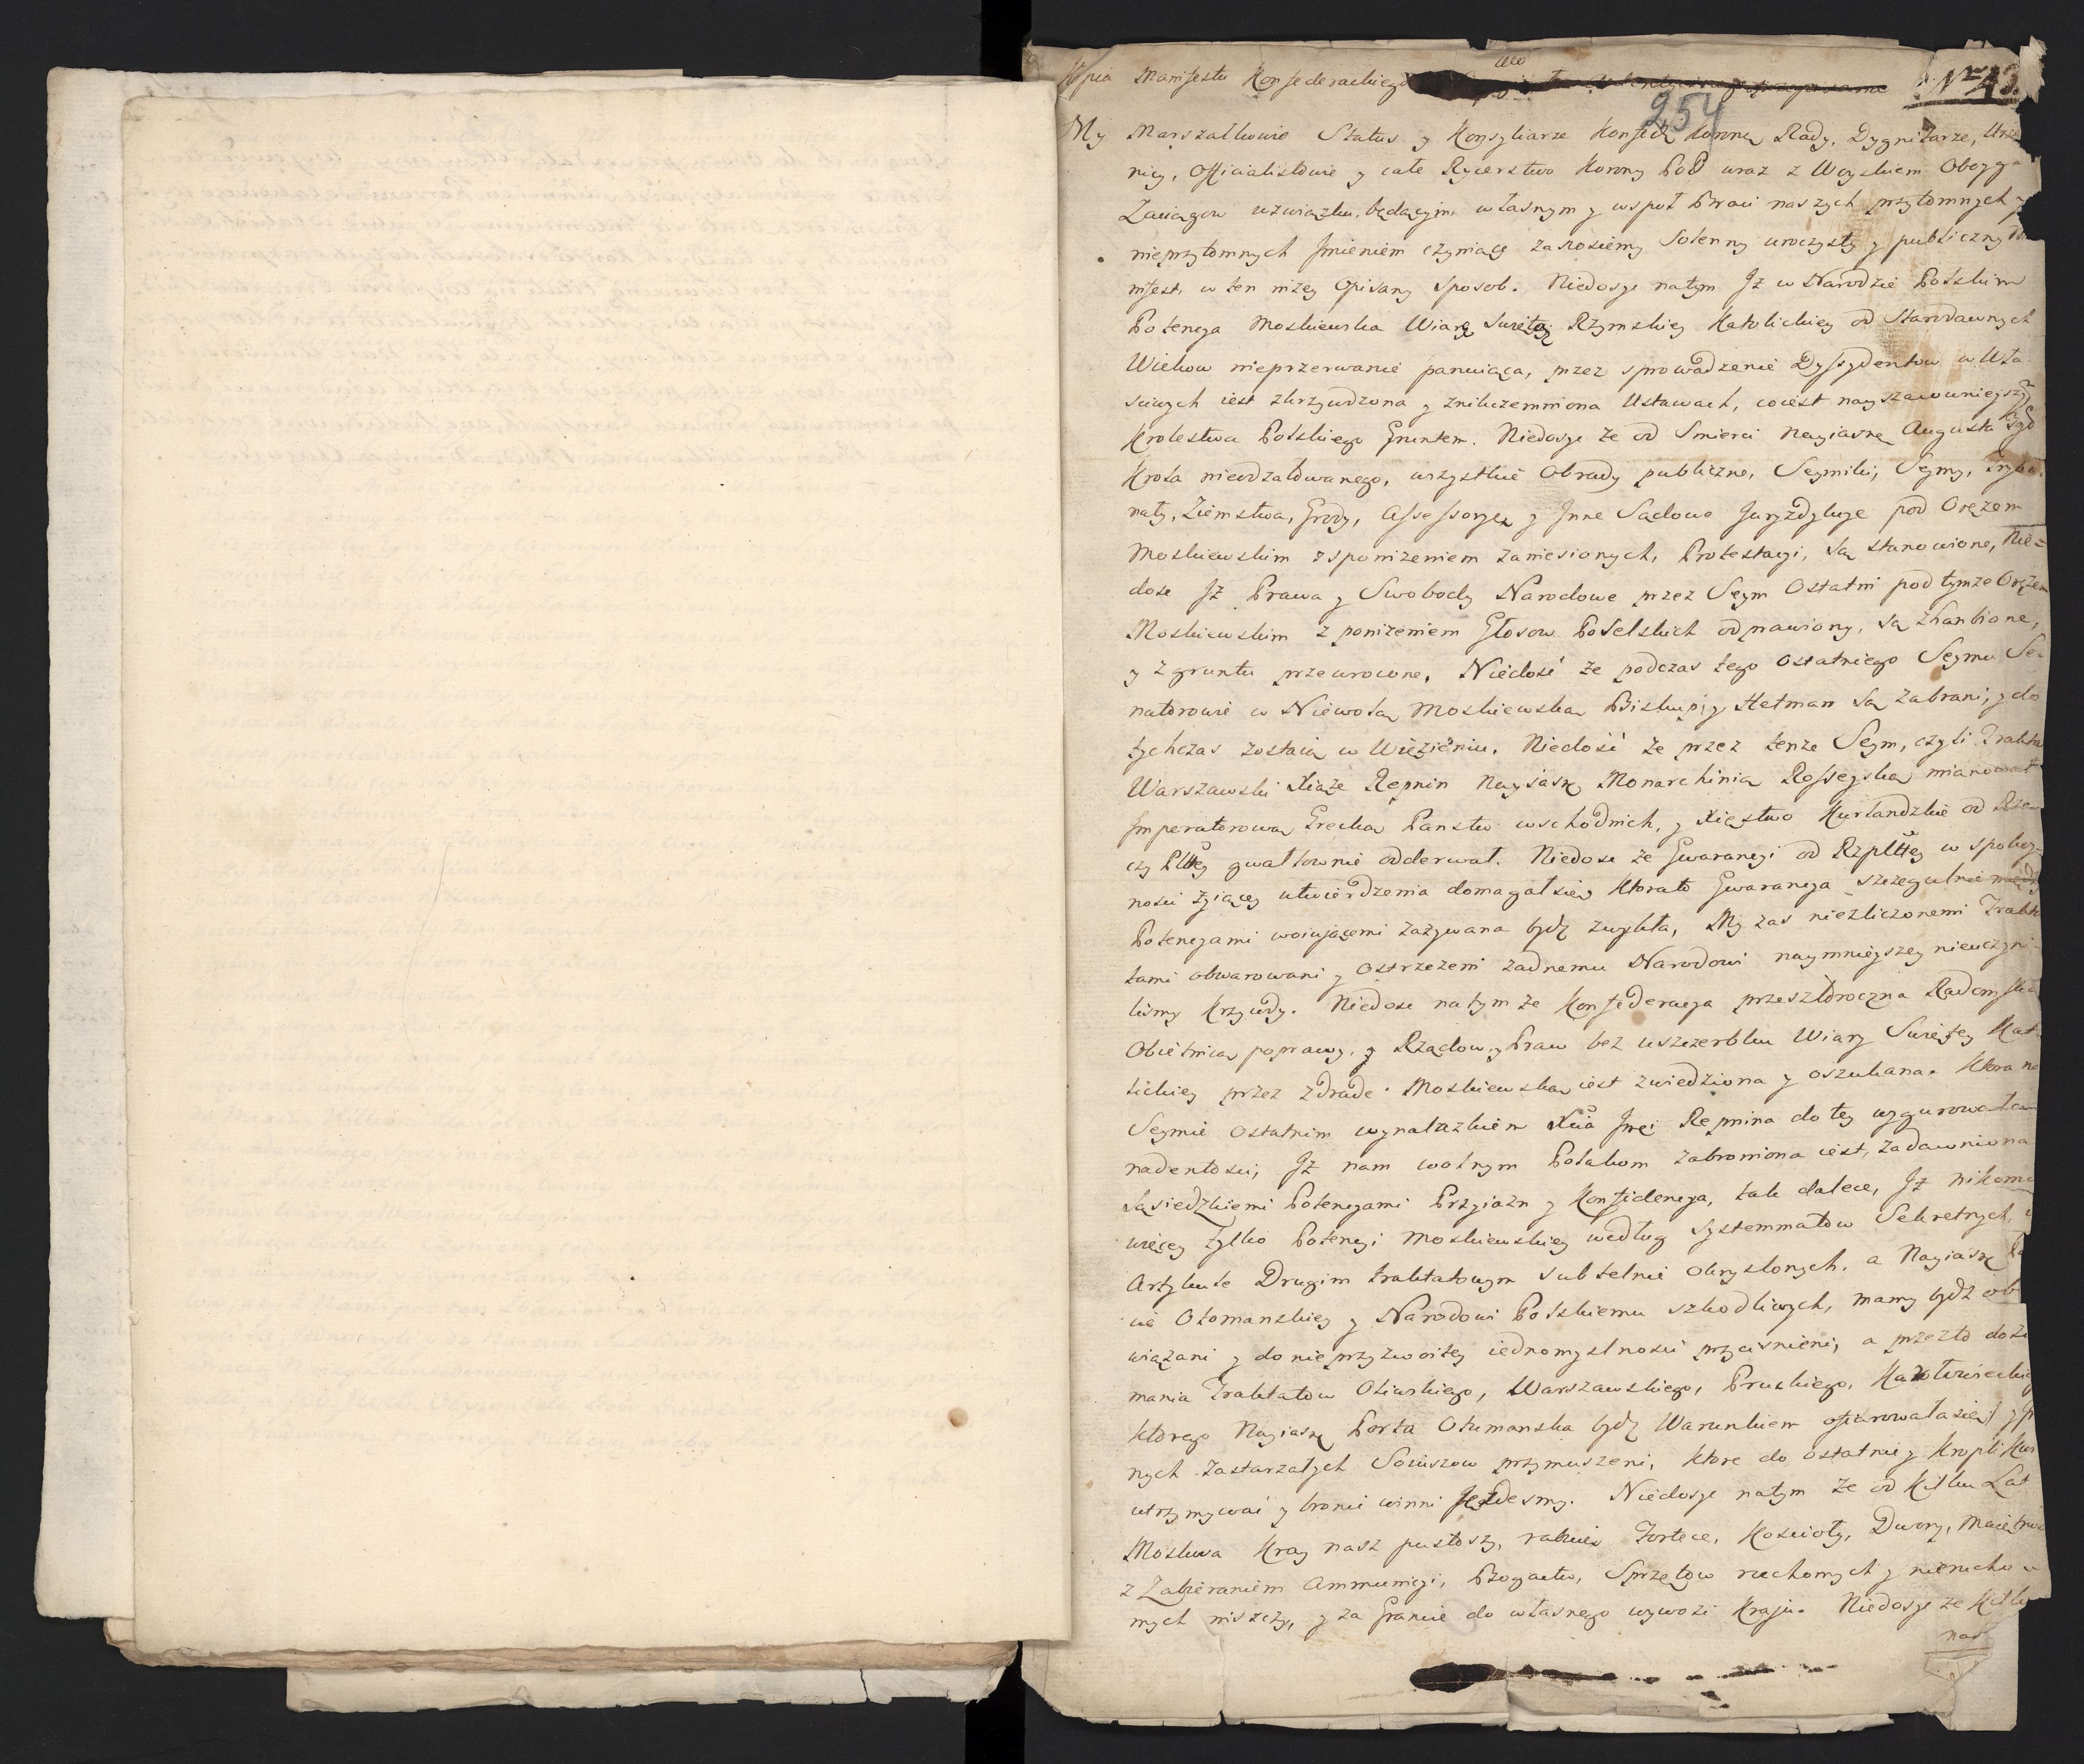 Kopia Manifestu Konfederackiego
Nr 43.
254
My Marszałkowie Status y Konsyliarze Konfedr Koronnej Rady, Dygnitarze, Urzę
nicy, Officialistowie y całe Rycerstwo Korony Pol wraz z Woyskiem Oboyga
Zaciągow wzwiązku będącym własnym y wspoł Braci naszych przytomnych y
nieprzytomnych Imieniem czyniąc zanosiemy Solenny uroczysty y publiczny Ma
nifest, w ten niżey Opisany Sposob. Niedosyc natym Iz w Narodzie Polskim
Potencya Moskiewska Wiarę Swiętą Rzymskiey Katolickiey od Starodawnych
Wiekow nieprzerwanie panuiąca, przez sprowadzenie Dyssydentow w Wła
sciwych iest zkrzywdzona y znikczemniona Ustawach, coiest nayszacownieyszym
Krolestwa Polskiego Gruntem. Niedosyc ze od Smierci Nayiasne Augusta 3go
Krola nieodzałowanego, wszystkie Obrady publiczne, Seymiki, Seymy, Trybu
nały, Ziemstwa, Grody, Assessorye y Inne Sądowe Juryzdykcye pod Oręzem
Moskiewskim zsponizeniem zaniesionych, Protestacyi, są stanowione, Nie=
dose Iz Prawa y Swobody Narodowe przez Seym Ostatni pod tymze Orężem
Moskiewskim z ponizeniem Głosow Poselskich odprawiony, są zhanbione,
y z gruntu przewrocone, Niedość ze podczas tego Ostatniego Seymu Se=
natorowie w Niewolą Moskiewską Biskupi y Hetman są zabrani, y do
tychczas zostaią w Więzieniu. Niedość ze przez tenze Seym, czyli Trakta
Warszawski Xiąze Repnin Nayiasną Monarchinią Rossyską mianował
Imperatorową Grecką Panstw wschodnich, y Xięstwo Kurlandzkie od Rze
czy Pltey gwałtownie odderwał. Niedose ze Gwarancyi od Rzpltey w spokoy=
nosci zyiącey utwierdzenia domagał się, Ktorato Gwarancya szczegulnie między
Potencyami woiuiącemi zazywana bydz zwykła, My zas niezliczonemi Trakta
tami obwarowani y Ostrzezeni zadnemu Narodowi naymnieyszey nieuczyni=
lismy Krzywdy. Niedose natym ze Konfederacya przeszłoroczna Radomska
Obietnicą poprawy, y Rządow y Praw bez uszczerbku Wiary Swiętey Kato
lickiey przez zdradę Moskiewską iest zwiedziona y oszukana. Ktora na
Seymie Ostatnim wynalazkiem Xcia Imci Repnina do tey wygurowała
nadentosci, Iz nam wolnym Polakom zabroniona iest, zadawniona
Sąsiedzkiemi Potencyami Przyiazn y Konfidencya, tak dalece, Iz nikomu
więcey tylko Potencyi Moskiewskiey według Systemmatow Sekretnych, w
Artykule Drugim traktatowym subtelnie Okryslonych, a Nayiasney Po
cie Otomanskiey y Narodowi Polskiemu szkodliwych, mamy bydz obo
wiązani y do nieprzyzwoitey iednomyslnosci przycisnieni, a przezto do
mania Traktatow Oliwskiego, Warszawskiego, Pruskiego, Karłowieckieg
Ktorego Nayiasney Porta Otomanska bydz Warunkiem ofiarowała się y
nych zastarzałych Soiuszow przymuszeni, Ktore do ostatniey Kropli Krw
utrzymywać y bronić winni Jestesmy. Niedosyc natym ze od Kilku Lat
Moskwa Kray nasz pustoszy, rabuie, Fortece, Koscioły, Dwory, Maiętnos
z Zabieraniem Ammunicyi, Bogactw, Sprzętow ruchomych y nierucho=
mych niszczy, y za Granice do własnego wywozi Kraju. Niedosyc ze Kilku
nas